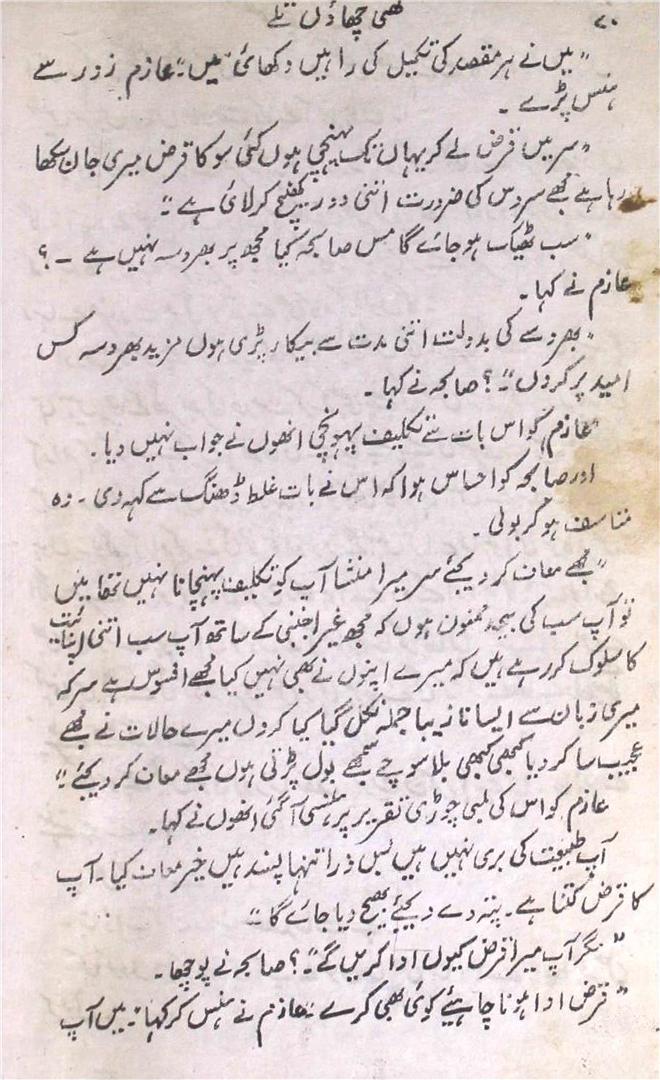 ۷۰
گھنی چھاؤں تلے
"میں نے ہر مقصد کی تکمیل کی راہیں دکھائی ہیں" عازم زور سے
ہنس پڑے۔
"سر میں قرض لے کر یہاں تک پہنچی ہوں کئی سو کا قرض میری جان سکھا
رہا ہے مجھے سروس کی ضرورت اتنی دور کھینچ کر لائی ہے"
"سب ٹھیک ہو جائے گا مس صابحہ کیا مجھ پر بھروسہ نہیں ہے ۔ ؟
عازم نے کہا۔
"بھروسے کی بدولت اتنی مدت سے بیکار پڑی ہوں مزید بھروسہ کس
امید پر کروں"؟ صابحہ نے کہا۔
عازم کو اس بات سے تکلیف پہونچی انھوں نے جواب نہیں دیا۔
اور صابحہ کو احساس ہوا کہ اس نے بات غلط ڈھنگ سے کہہ دی۔ وہ
متاسف ہو کر بولی۔
"مجھے معاف کر دیجئے سر میرا منشا آپ کو تکلیف پہنچانا نہیں تھا میں
تو آپ سب کی بیحد ممنون ہوں کہ مجھ غیر اجنبی کے ساتھ آپ سب اتنی اپنائیت
کا سلوک کر رہے ہیں کہ میرے اپنوں نے بھی نہیں کیا مجھے افسوس ہے سر کہ
میری زبان سے ایسا نازیبا جملہ نکل گیا کیا کروں میرے حالات نے مجھے
عجیب سا کر دیا کبھی کبھی بلا سوچے سمجھے بول پڑتی ہوں مجھے معاف کر دیجئے"
عازم کو اس کی لمبی چوڑی تقریر پر ہنسی آ گئی انھوں نے کہا۔
آپ طبیعت کی بری نہیں ہیں بس ذرا تنہا پسند ہیں خیر معاف کیا۔ آپ
کا قرض کتنا ہے۔ پتہ دے دیجئے بھیج دیا جائے گا"
"مگر آپ میرا قرض کیوں ادا کریں گے"؟ صابحہ نے پوچھا۔
"قرض ادا ہونا چاہیئے کوئی بھی کرے" عازم نے ہنس کر کہا "میں آپ